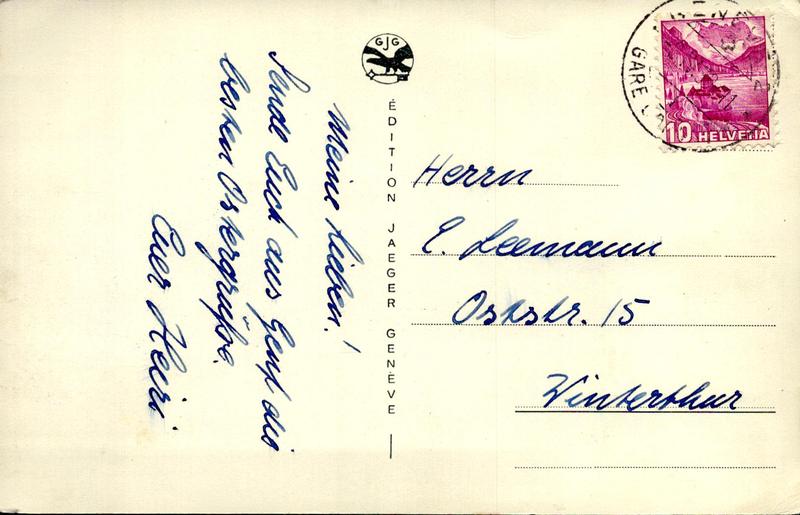 Meine Lieben!
Sende Euch aus Genf die
besten Ostergrüße.
Euer Heiri
GJG
ÉDITION JAEGER GENÈVE
GARE
10 HELVETIA
Herrn
E. Leemann
Oststr. 15
Winterthur